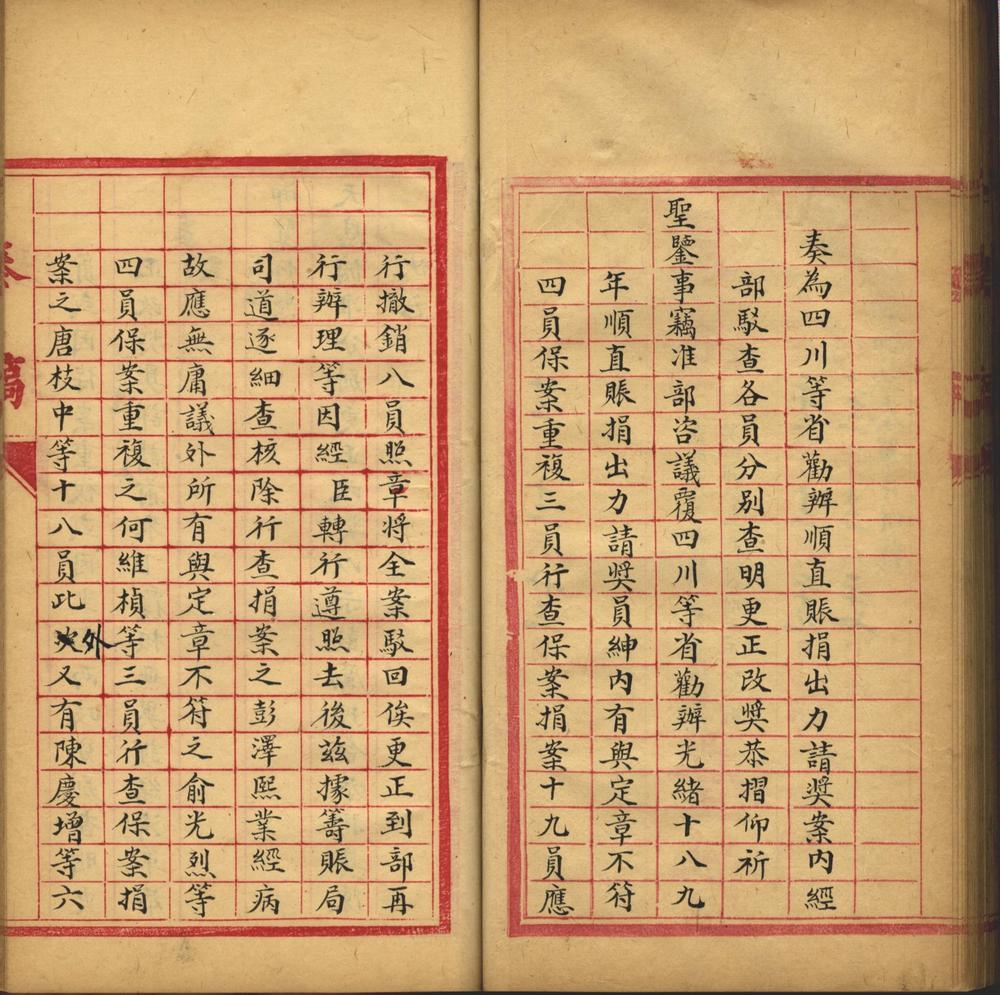 奏為四川等省勸辦順直賬捐出力請奬案內經
部駁查各員分別查明更正改奬恭摺仰祈
聖鑒事竊准部咨議覆四川等省勸辦光緒十八九
年順直賬捐出力請奬員紳內有與定章不符
四員保案重複三員行查保案捐案十九員應
行撤銷八員照章將全案駁回俟更正到部再
行辦理等因經臣轉行遵照去後茲據籌賬局
司道逐細查核除行查捐案之彭澤熙業經病
故應無庸議外所有與定章不符之俞光烈等
四員保案重複之何維楨等三員行查保案捐
案之唐枝中等十八員此外又有陳慶增等六
奏稿